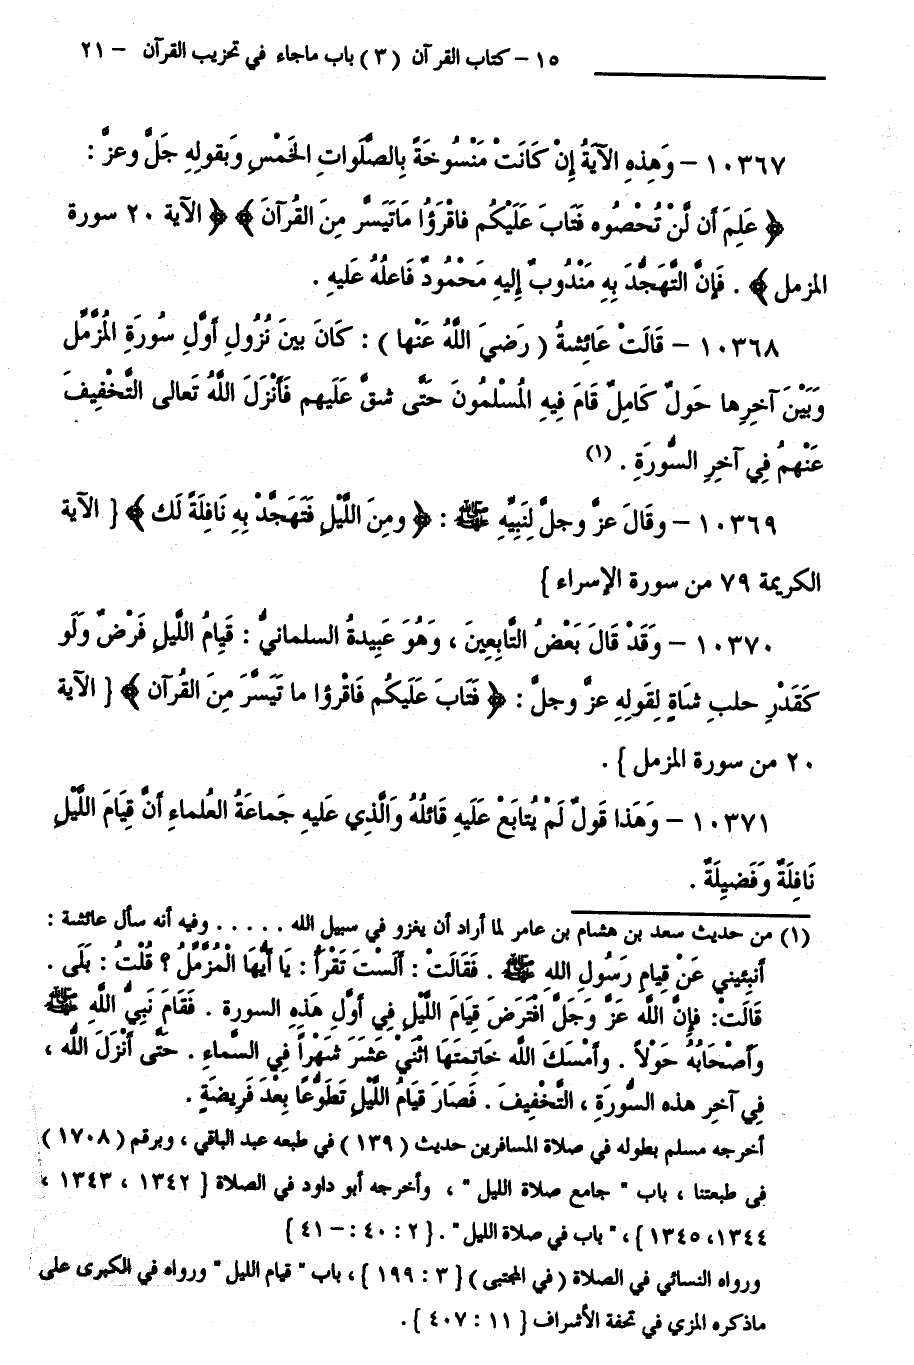 ١٥ – كتاب القرآن (٣) باب ماجاء في تحزيب القرآن – ٢١
١٠٣٦٧ – وَهذِهِ الآيَةُ إِنْ كَانَتْ مَنْسُوخَةً بِالصَّلَواتِ الخَمْسِ وَبقولِهِ جَلَّ وعزَّ :
﴿ عَلِمَ أَن لَّنْ تُحْصُوه فَتَابَ عَلَيْكُم فاقْرَؤُا مَاتَيَسَّر مِنَ القُرآنَ ﴾ ﴿ الآية ٢٠ سورة
المزمل ﴾ . فَإِنَّ التَّهَجُّدَ بِهِ مَنْدُوبٌ إِليهِ مَحْمُودٌ فَاعلُهُ عَليهِ .
١٠٣٦٨ – قَالَتْ عَائِشةُ ( رَضيَ اللَّهُ عَنْها ) : كَانَ بينَ نُزُولِ أوَّلِ سُورَةِ الُمزَّمِّل
وَبَيْنَ آخِرِها حَولٌ كَامِلٌ قَامَ فِيهِ المُسْلمُونَ حَتَّى شقَّ عَلَيهم فَأَنْزَلَ اللَّهُ تَعالى التَّخْفِيفَ
عَنْهمُ فِي آخِرِ السُّورَةِ . (١)
١٠٣٦٩ – وقَالَ عزَّ وجلَّ لِنَبِيِّهِ ﷺ : ﴿ ومِنَ اللَّيْلِ فَتَهَجَّدْ بِهِ نَافِلَةً لَك ﴾ { الآية
الكريمة ٧٩ من سورة الإسراء }
١٠٣٧٠ – وَقَدْ قَالَ بَعْضُ التَّابِعِينَ ، وَهُوَ عَبِيدةُ السلمانيُّ : قَيامُ اللَّيلِ فَرْضٌ وَلَو
كَقَدْرِ حلبِ شاةٍ لِقَولِهِ عزَّ وجلَّ : ﴿ فَتَابَ عَلَيكُم فَاقْرؤا ما تَيَسَّرَ مِنَ القُرآن ﴾ { الآية
٢٠ من سورة المزمل } .
١٠٣٧١ – وَهَذا قَولٌ لَمْ يُتابَعْ عَلَيهِ قَائلُهُ وَالَّذِي عَليهِ جَماعَةُ العُلماءِ أنَّ قِيَامَ اللَّيْلِ
نَافِلَةٌ وَفَضِيلَةٌ .
(١) من حديث سعد بن هشام بن عامر لما أراد أن يغزو في سبيل الله ..... وفيه أنه سأل عائشة :
أَنبِئيني عَنْ قيامِ رَسُولِ اللهِ ﷺ . فَقَالَتْ : أَلَسْتَ تَقْرَأُ : يَا أَيُّهَا الْمُزَّمِّلُ ؟ قُلْتُ : بَلَى .
قَالَتْ: فَإِنَّ اللَّه عَزَّ وَجَلَّ افْتَرَضَ قِيَامَ اللَّيْلِ فِي أَوَّلِ هَذِهِ السورة . فَقَامَ نَبِيُّ اللَّهِ ﷺ
وَأَصْحَابُهُ حَوْلاً . وأَمْسَكَ اللَّه خَاتِمتَهَا اثْنَيْ عَشَرَ شَهْراً فِي السَّماءِ . حَتَّى أَنْزَلَ اللَّه ،
فِي آخرِ هذه السُّورَةِ ، التَّخْفِيفَ . فَصَارَ قيَامُ اللَّيْلِ تَطَوُّعًا بِعْدَ فَرِيضَةٍ .
أخرجه مسلم بطوله في صلاة المسافرين حديث ( ١٣٩ ) في طبعه عبد الباقي ، وبرقم ( ١٧٠٨ )
فى طبعتنا ، باب " جامع صلاة الليل " ، وأخرجه أبو داود في الصلاة { ١٣٤٢ ، ١٣٤٣ ،
١٣٤٤، ١٣٤٥ } ، " باب في صلاة الليل " . { ٢ : ٤٠ :– ٤١ }
ورواه النسائي في الصلاة ( في المجتبى ) { ٣ : ١٩٩ } ، باب " قيام الليل " ورواه في الكبرى على
ماذكره المزي في تحفة الأشراف { ١١ : ٤٠٧ } .